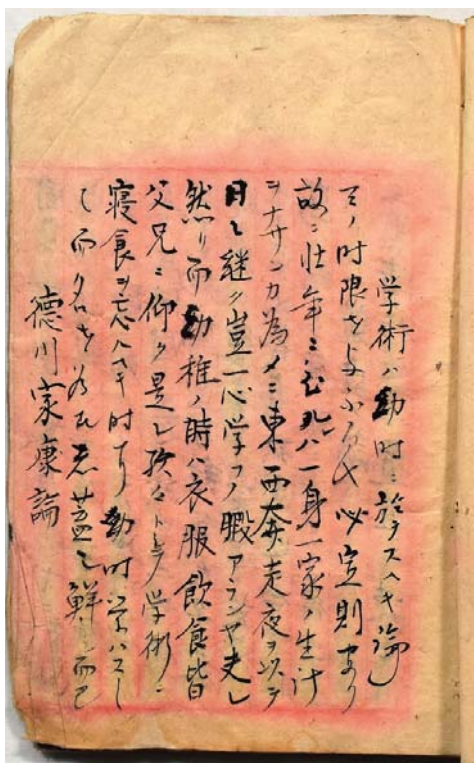 学術ハ幼時ニ於テスヘキ論
之ノ时限を与ふる必定則あり
故ニ壮年ニ至レハ一身一家ノ生计
ヲナサンカ為メニ東西奔走夜ヲ以テ
日ヲ継ク豈一心学フノ暇アランヤ夫レ
然リ而幼稚ノ時ハ衣服飲食皆
父兄ニ仰ク是レ孜々トシテ学術ニ
寝食ヲ忘ルヘキ时ナリ幼时学ハスし
て而名を為
徳川家康論